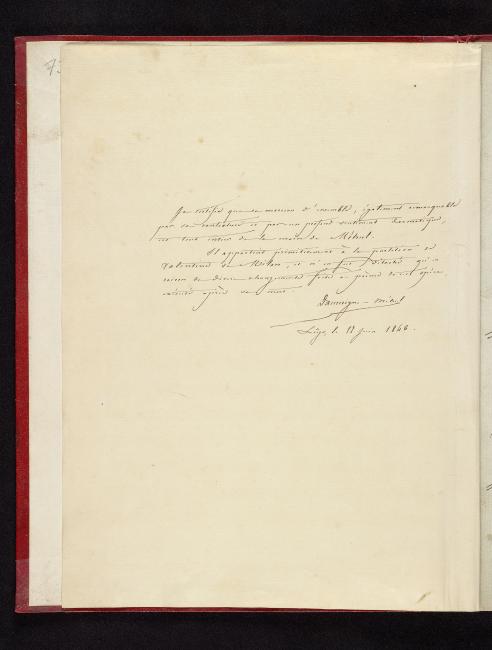 73
Je certifie que ce morceau d'ensemble, également remarquable
par sa contexture et par un profond sentiment dramatique,
est tout entier de la main de Méhul.
Il appartint primitivement à la partition de
Valentine de Milan, et n'en fut détaché qu'en
raison de divers changements faits au poème de cet opéra
exécuté après sa mort.
Daussoigne-Méhul
Liège, le 18 Juin 1846.